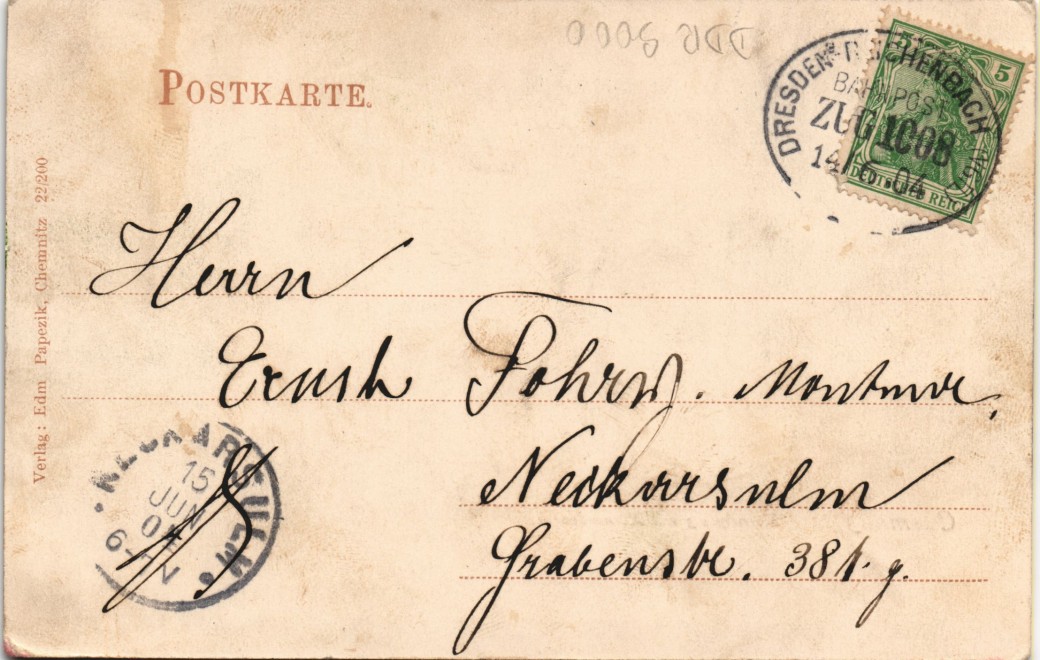 DDR 9000
POSTKARTE.
5
DEUTSCHES REICH
DRESDEN-REICHENBACH
BAHNPOST
ZUG 1008
14/6 04
Herrn
Ernst Monteur,
Neckarsulm
Grabenstr. 381. g.
NECKARSULM
15
JUN
04
6-7 V
Verlag: Edm Papezik, Chemnitz 22/200